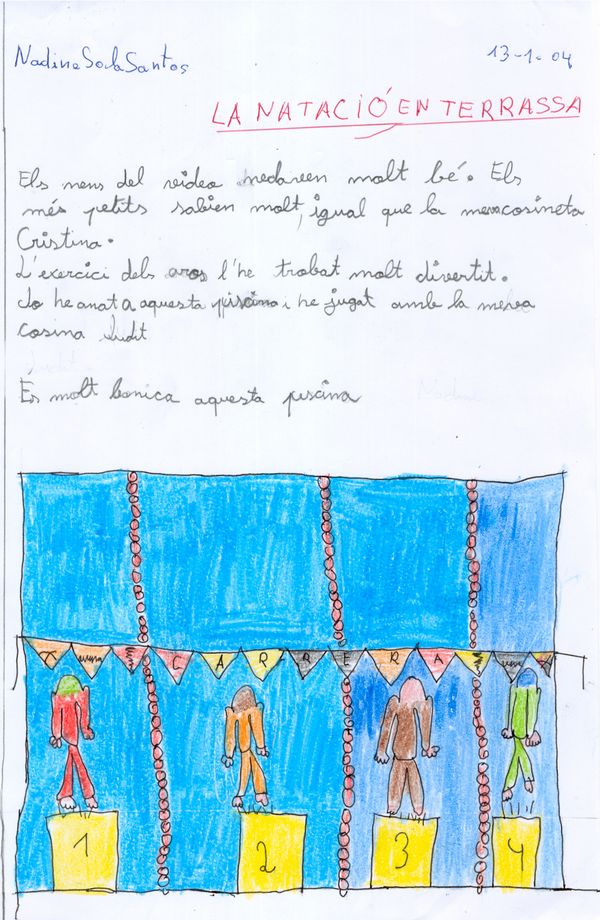 Nadine Sola Santos
13-1-04
LA NATACIÓ EN TERRASSA
Els nens del video nedaven molt bé. Els
més petits sabien molt, igual que la meva cosineta
Cristina.
L'exercici dels aros l'he trobat molt divertit.
Jo he anat a aquesta piscina i he jugat amb la meva
cosina Judit
És molt bonica aquesta piscina
CARRERA
1 2 3 4